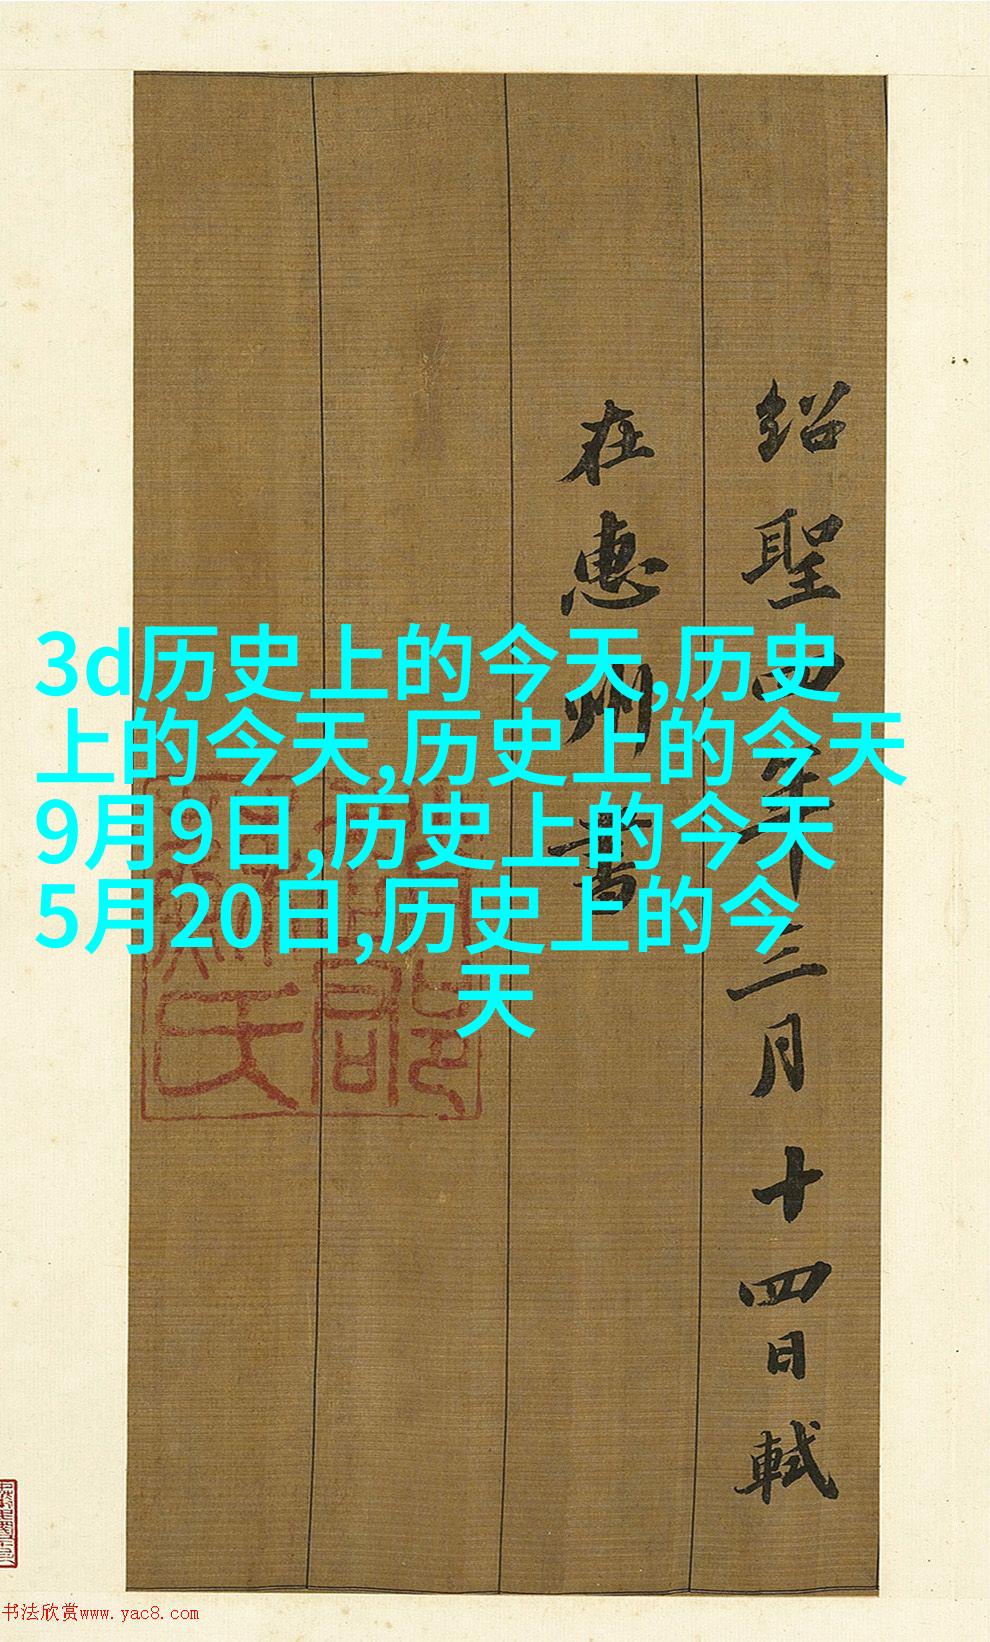 3d历史上的今天,历史
上的今天,历史上的今天
9月9日,历史上的今天
5月20日,历史上的今
天
紹聖四年三月十四日軾
在惠州書
书法欣赏www.yac8.com